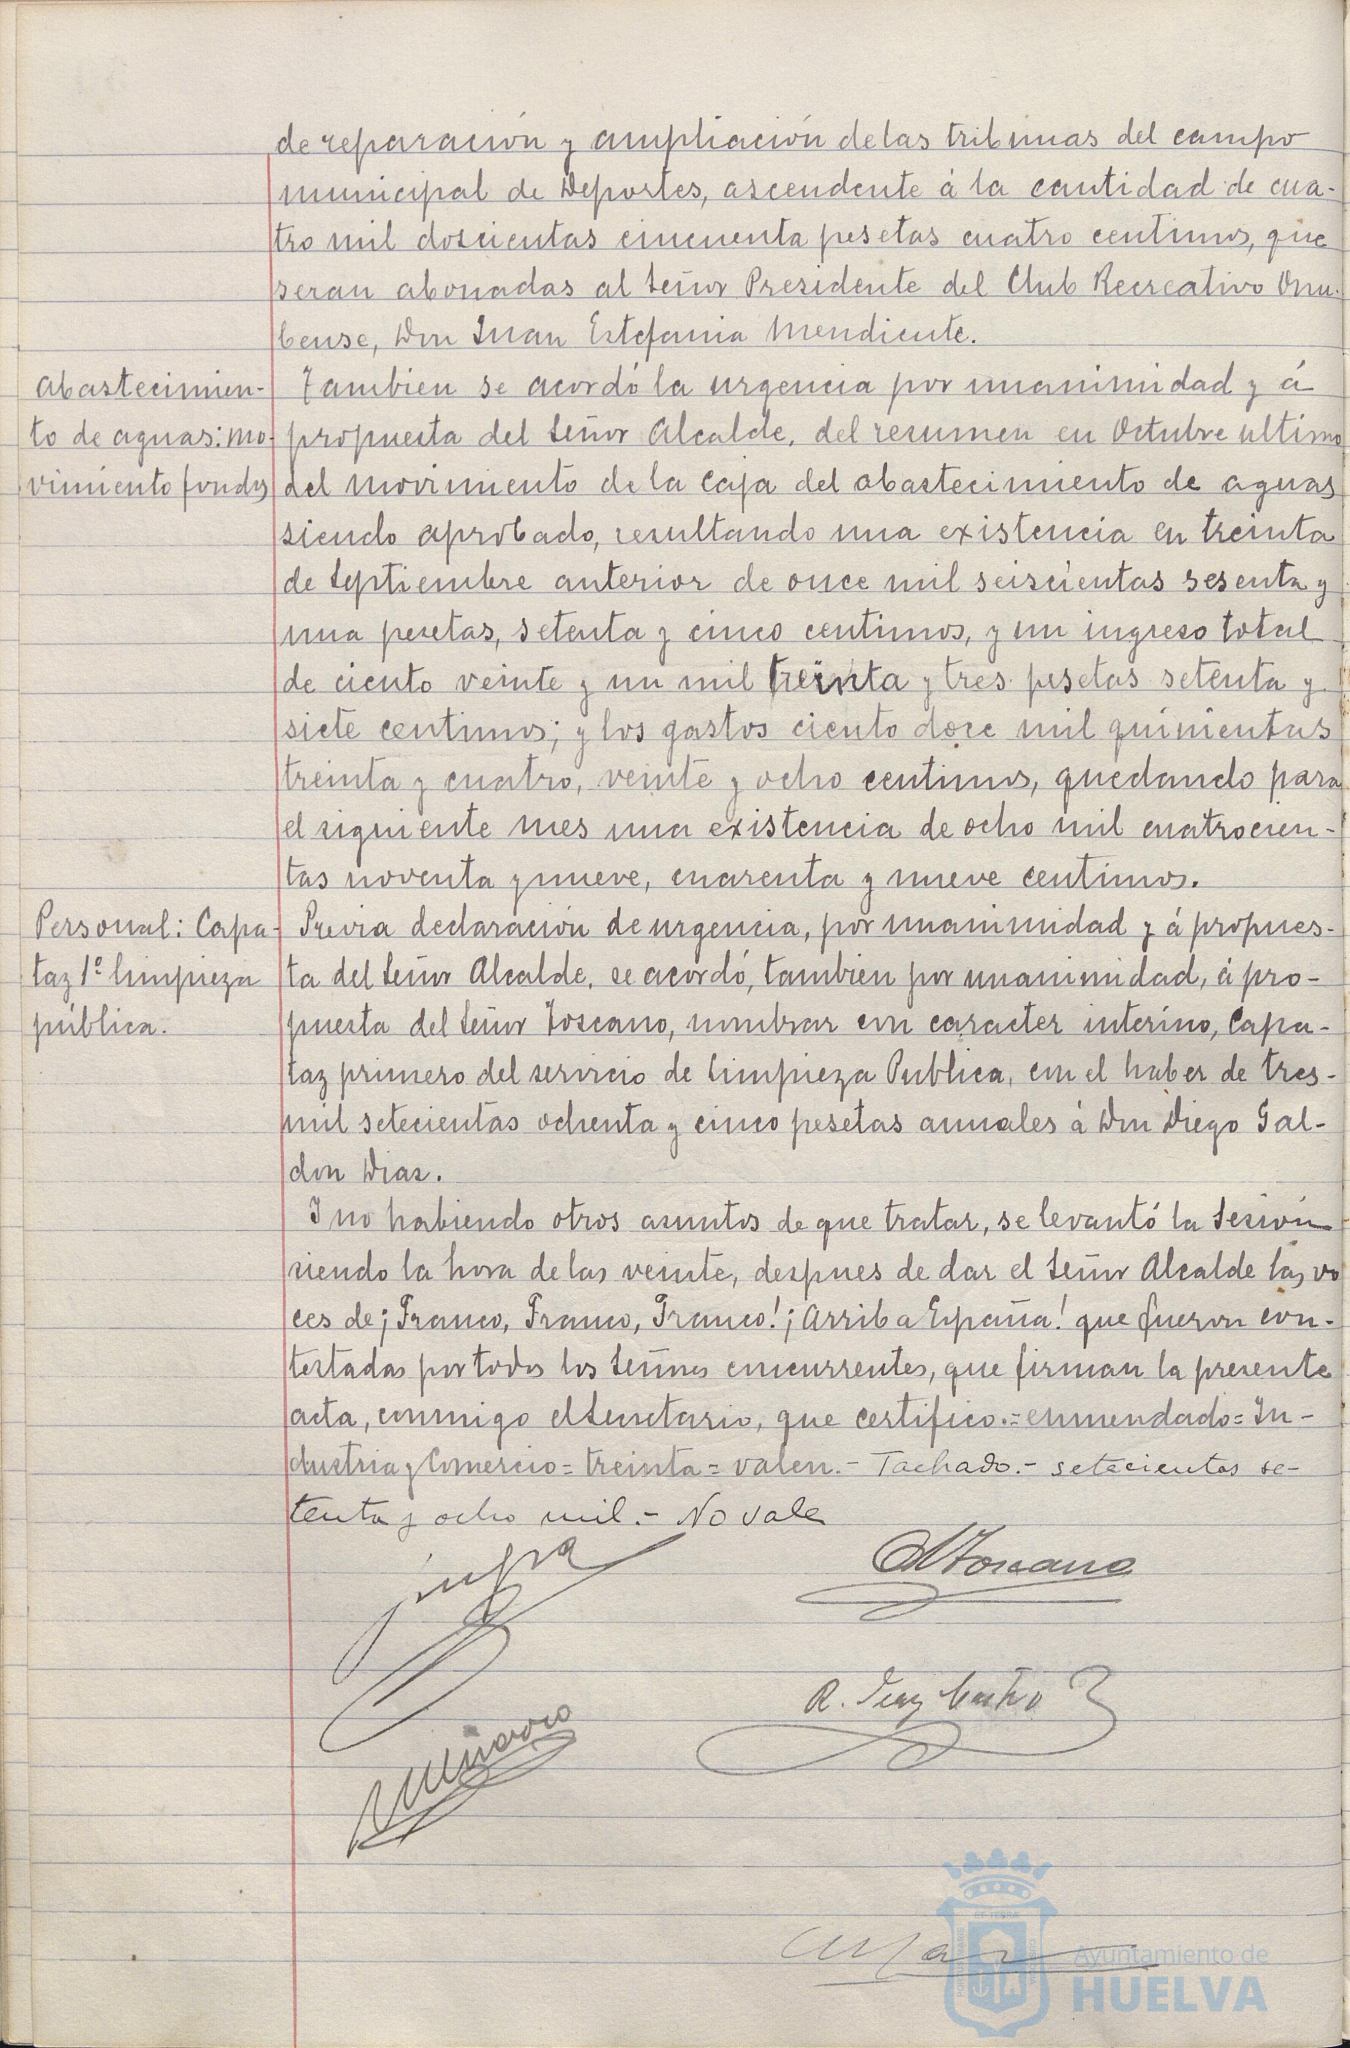 de reparación y ampliación de las tribunas del campo
municipal de Deportes, ascendente á la cantidad de cua-
tro mil doscientas cincuenta pesetas cuatro centimos, que
seran abonadas al Señor Presidente del Club Recreativo Onu-
bense, Don Juan Estefania Mendicute.
Abastecimien-
to de aguas: mo-
vimiento fondos
Tambien se acordó la urgencia por unanimidad y á
propuesta del Señor Alcalde, del resumen en Octubre ultimo
del movimiento de la caja del abastecimiento de aguas
siendo aprobado, resultando una existencia en treinta
de Septiembre anterior de once mil seiscientas sesenta y
una pesetas, setenta y cinco centimos, y un ingreso total
de ciento veinte y un mil treinta y tres pesetas setenta y
siete centimos; y los gastos ciento doce mil quinientas
treinta y cuatro, veinte y ocho centimos, quedando para
el siguiente mes una existencia de ocho mil cuatrocien-
tas noventa y nueve, cuarenta y nueve centimos.
Personal: Capa-
taz 1º limpieza
pública.
Previa declaración de urgencia, por unanimidad y á propues-
ta del Señor Alcalde, se acordó, tambien por unanimidad, á pro-
puesta del Señor Toscano, nombrar con caracter interino, Capa-
taz primero del servicio de Limpieza Publica, con el haber de tres-
mil setecientas ochenta y cinco pesetas anuales á Don Diego Gal-
don Dias.
Y no habiendo otros asuntos de que tratar, se levantó la Sesión
siendo la hora de las veinte, despues de dar el Señor Alcalde las vo
ces de ¡Franco, Franco, Franco! ¡Arriba España! que fueron con-
testadas por todos los Señores concurrentes, que firman la presente
acta, conmigo el Secretario, que certifico.=enmendado=In-
dustria y Comercio=treinta=valen.- Tachado.- setecientos se-
tenta y ocho mil.- No vale
Toscano
R.
Ayuntamiento de
HUELVA